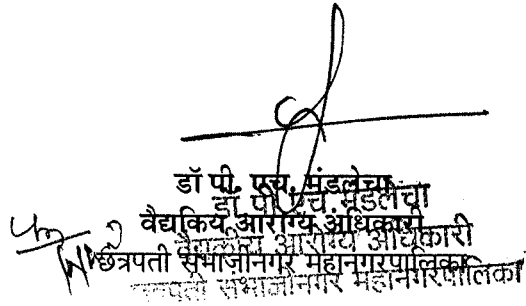 डॉ पी. एच. मंडलेचा
डॉ पी. एच. मंडलेचा
वैद्यकिय आरोग्य अधिकारी
वैद्यकीय आरोग्य अधिकारी
छत्रपती संभाजीनगर महानगरपालिका
छत्रपती संभाजीनगर महानगरपालिका